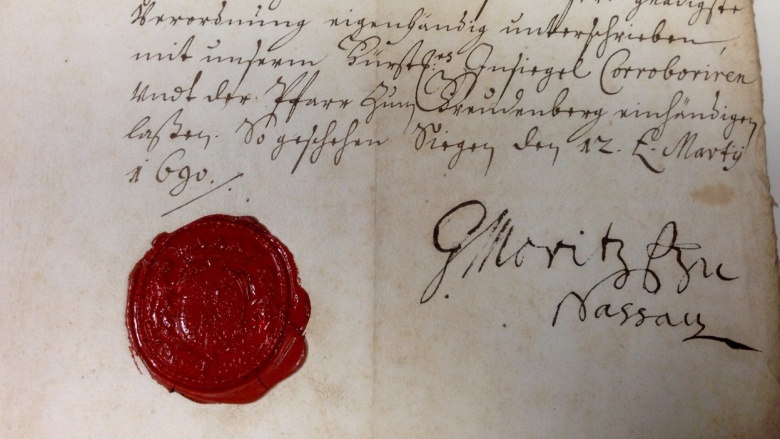 gnädigste
Verordnung eigenhändig unterschrieben,
mit unserm Fürstl: Insiegel Corroboriren
Undt der Pfarr Zum Freudenberg einhändigen
laßen. So geschehen Siegen den 12. t. Martij
1690.
Moritz f z u
Nassau